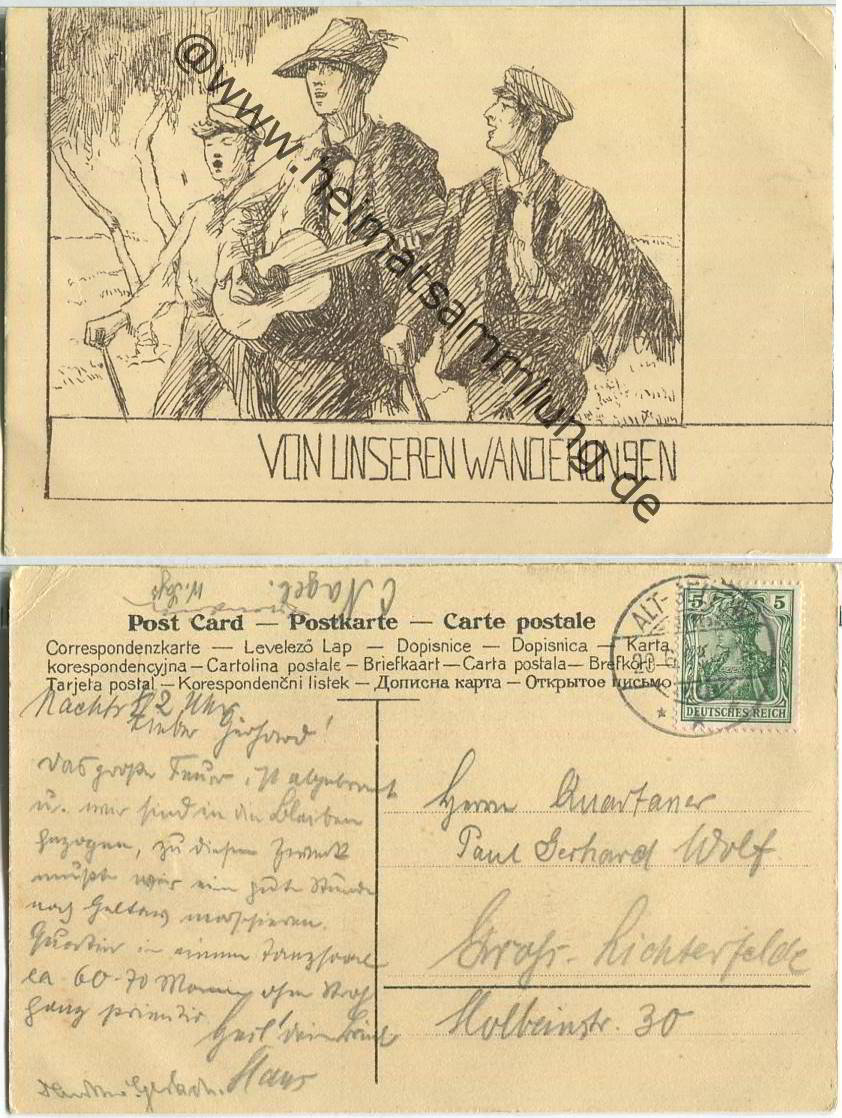 @www.heimatsammlung.de
VON UNSEREN WANDERUNGEN
C Nagel.
Post Card — Postkarte — Carte postale
Correspondenzkarte — Levelező Lap — Dopisnice — Dopisnica — Karta
korespondencyjna — Cartolina postale — Briefkaart — Carta postala — Brefkort —
Tarjeta postal — Korespondenčni listek — Дописна карта — Открытое письмо
ALT-
5 5
DEUTSCHES REICH
Nachts 12 Uhr
Lieber Gerhard!
das große Feuer ist abgebrannt
u. wir sind in die Bleiben
gezogen, zu diesem Zweck
mußten wir eine gute Stunde
nach Geltow marschieren.
Quartier in einem Tanzsaal
ca 60-70 Mann ohne
Heil! dein
Hans
Herrn Quartaner
Paul Gerhard Wolf
Gross-Lichterfelde
Holbeinstr. 30